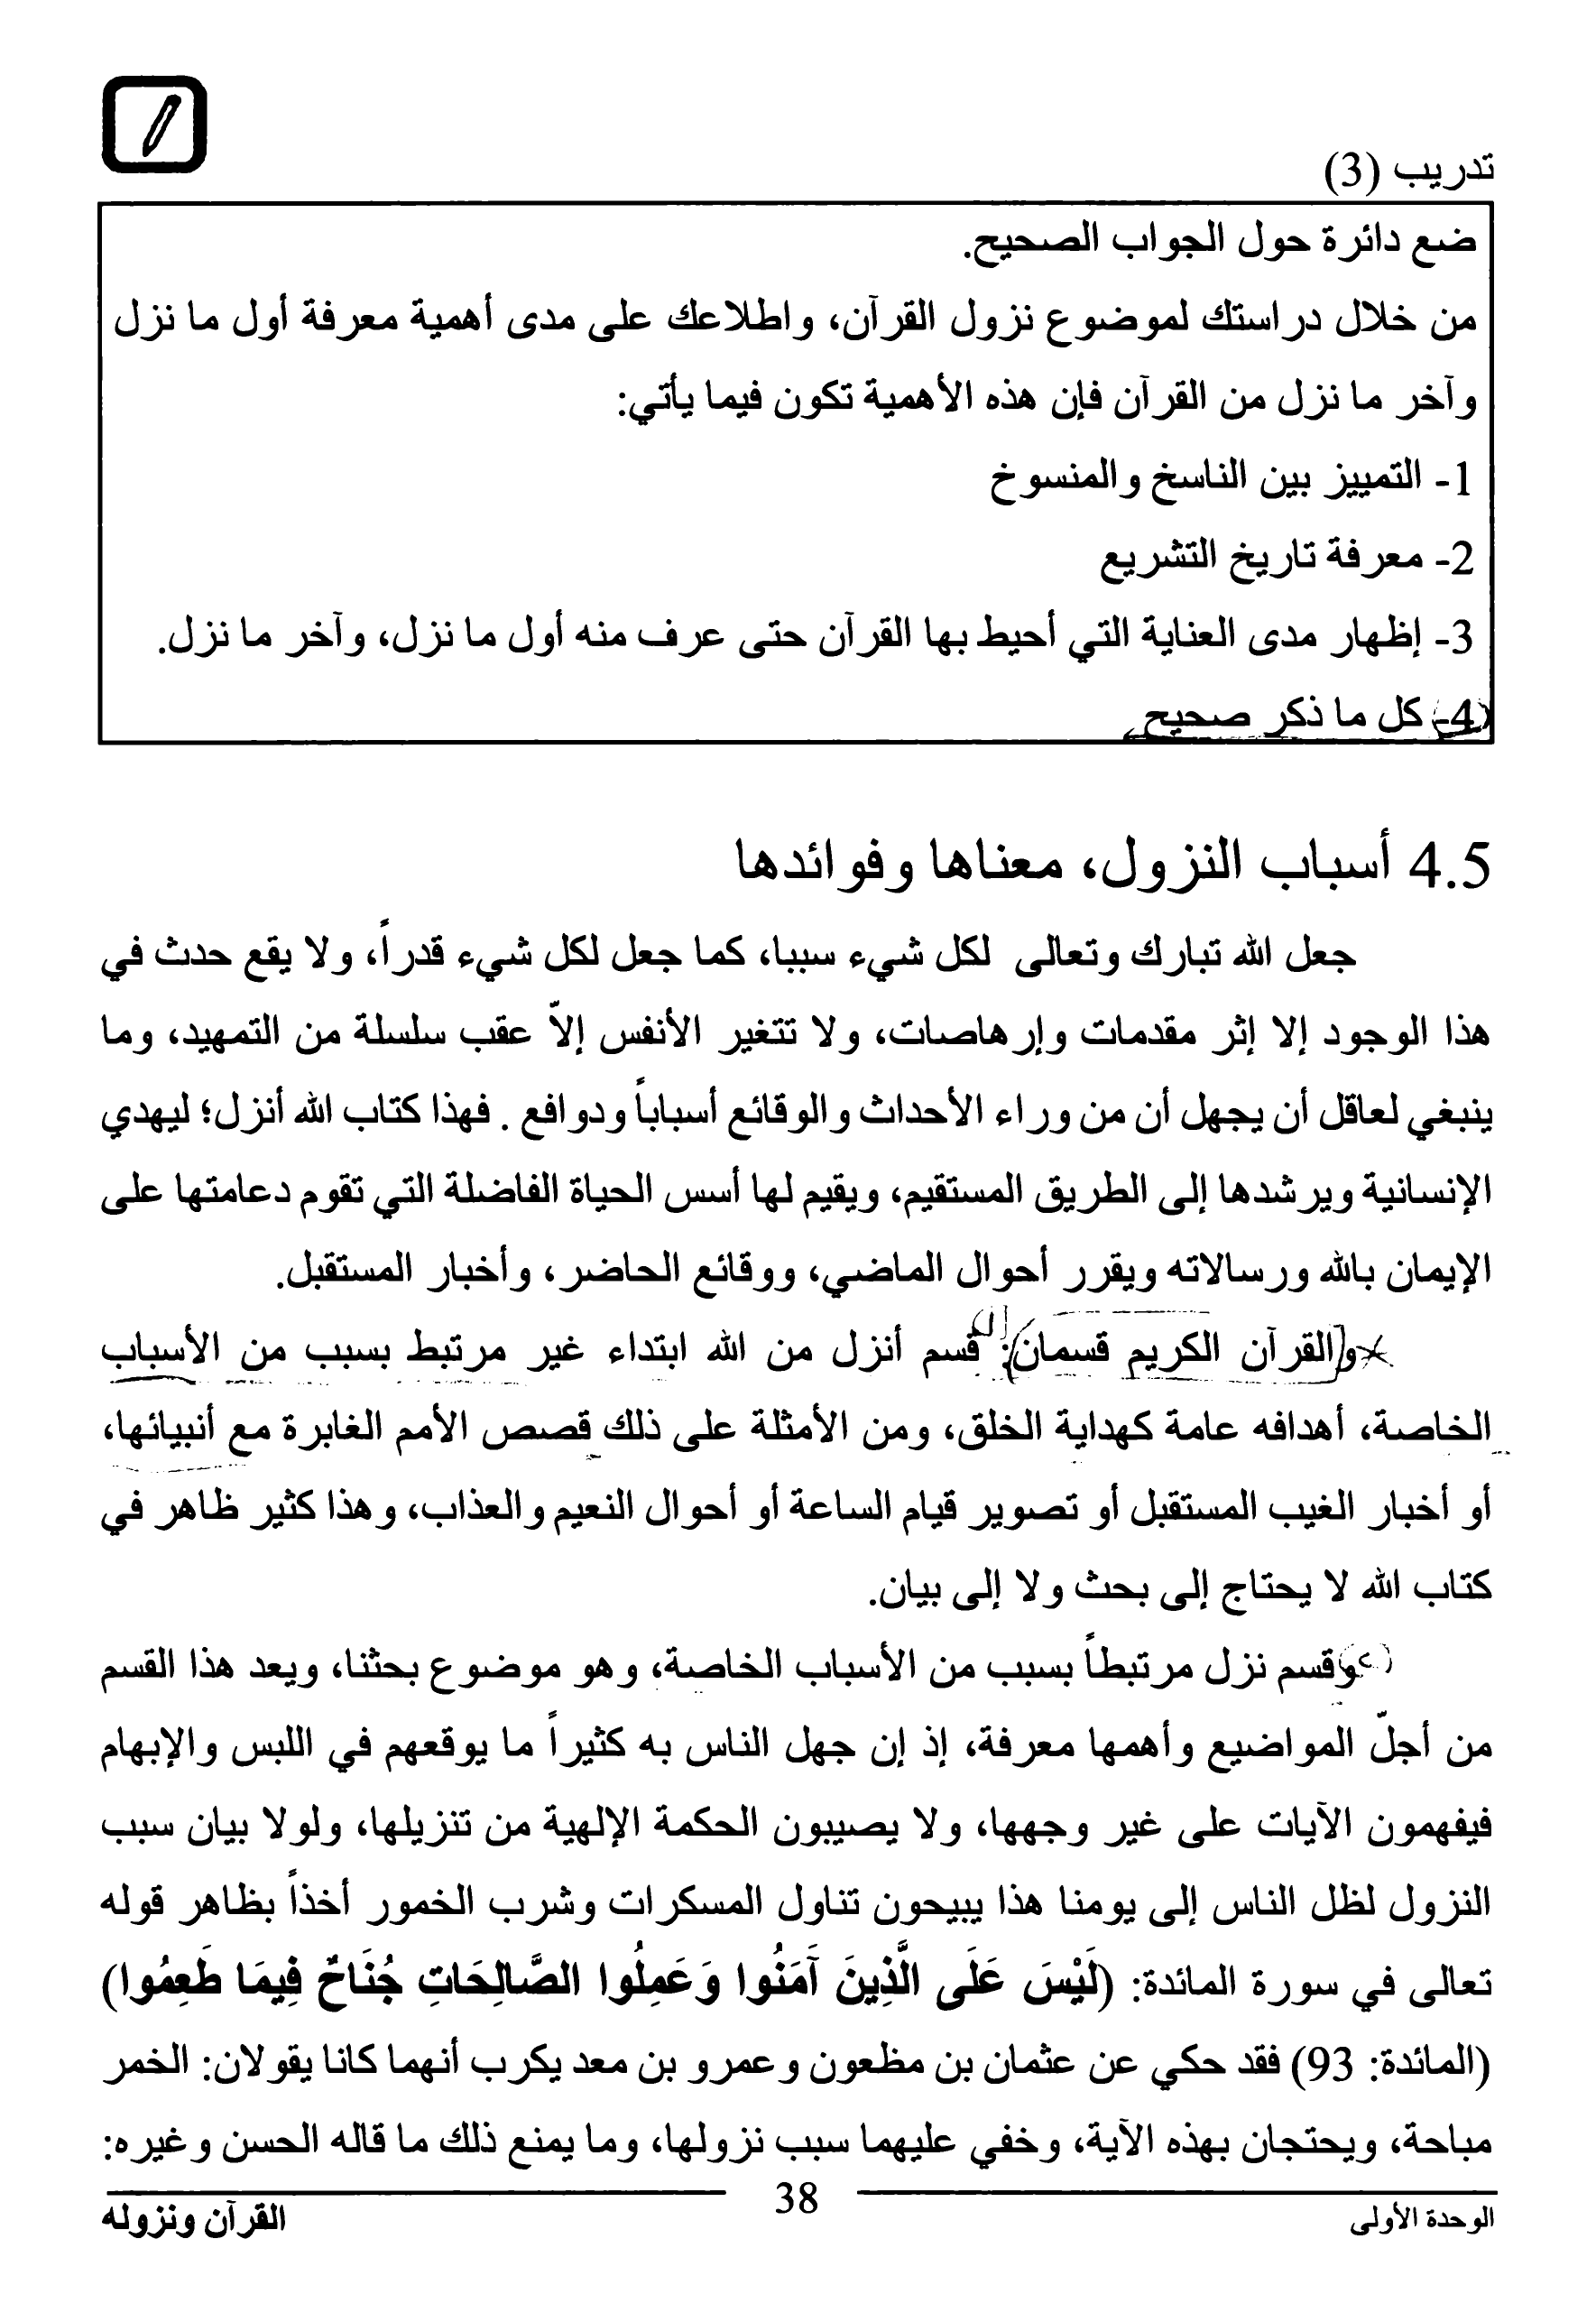 تدريب (3)
ضع دائرة حول الجواب الصحيح.
من خلال دراستك لموضوع نزول القرآن، واطلاعك على مدى أهمية معرفة أول ما نزل
وآخر ما نزل من القرآن فإن هذه الأهمية تكون فيما يأتي:
1- التمييز بين الناسخ والمنسوخ
2- معرفة تاريخ التشريع
3- إظهار مدى العناية التي أحيط بها القرآن حتى عرف منه أول ما نزل، وآخر ما نزل.
4- كل ما ذكر صحيح
4.5 أسباب النزول، معناها وفوائدها
جعل الله تبارك وتعالى لكل شيء سببا، كما جعل لكل شيء قدراً، ولا يقع حدث في
هذا الوجود إلا إثر مقدمات وإرهاصات، ولا تتغير الأنفس إلاّ عقب سلسلة من التمهيد، وما
ينبغي لعاقل أن يجهل أن من وراء الأحداث والوقائع أسباباً ودوافع . فهذا كتاب الله أنزل؛ ليهدي
الإنسانية ويرشدها إلى الطريق المستقيم، ويقيم لها أسس الحياة الفاضلة التي تقوم دعامتها على
الإيمان بالله ورسالاته ويقرر أحوال الماضي، ووقائع الحاضر، وأخبار المستقبل.
والقرآن الكريم قسمان: قسم أنزل من الله ابتداء غير مرتبط بسبب من الأسباب
الخاصة، أهدافه عامة كهداية الخلق، ومن الأمثلة على ذلك قصص الأمم الغابرة مع أنبيائها،
أو أخبار الغيب المستقبل أو تصوير قيام الساعة أو أحوال النعيم والعذاب، وهذا كثير ظاهر في
كتاب الله لا يحتاج إلى بحث ولا إلى بيان.
وقسم نزل مرتبطاً بسبب من الأسباب الخاصة، وهو موضوع بحثنا، ويعد هذا القسم
من أجلّ المواضيع وأهمها معرفة، إذ إن جهل الناس به كثيراً ما يوقعهم في اللبس والإبهام
فيفهمون الآيات على غير وجهها، ولا يصيبون الحكمة الإلهية من تنزيلها، ولولا بيان سبب
النزول لظل الناس إلى يومنا هذا يبيحون تناول المسكرات وشرب الخمور أخذاً بظاهر قوله
تعالى في سورة المائدة: (لَيْسَ عَلَى الَّذِينَ آَمَنُوا وَعَمِلُوا الصَّالِحَاتِ جُنَاحٌ فِيمَا طَعِمُوا)
(المائدة: 93) فقد حكي عن عثمان بن مظعون وعمرو بن معد يكرب أنهما كانا يقولان: الخمر
مباحة، ويحتجان بهذه الآية، وخفي عليهما سبب نزولها، وما يمنع ذلك ما قاله الحسن وغيره:
الوحدة الأولى
38
القرآن ونزوله